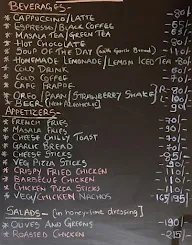 BEVERAGES-
* CAPPUCCINO/LATTE -80/-
* ESPRESSO/BLACK COFFEE -65/-
* MASALA TEA/GREEN TEA -55/-
* HOT CHOCOLATE -80/-
* SOUP OF THE DAY (with Garlic Bread) -
* HOMEMADE LEMONADE/LEMON ICED TEA -80/-
* COLD DRINK -50/-
* COLD COFFEE -80/-
* CAFE FRAPPE -90/-
* OREO/BANANA/STRAWBERRY SHAKE
* BEER (Non Alcoholic) -90/-
APPETIZERS-
* FRENCH FRIES -70/-
* MASALA FRIES -90/-
* CHEESE CHILLY TOAST -70/-
* GARLIC BREAD -70/-
* CHEESE STICKS -85/-
* VEG PIZZA STICKS -90/-
* CRISPY FRIED CHICKEN -110/-
* BARBECUE CHICKEN -110/-
* CHICKEN PIZZA STICKS -110/-
* VEG/CHICKEN NACHOS -165/195/-
SALADS- [in honey-lime dressing]
* OLIVES AND GREENS -190/-
* ROASTED CHICKEN -215/-